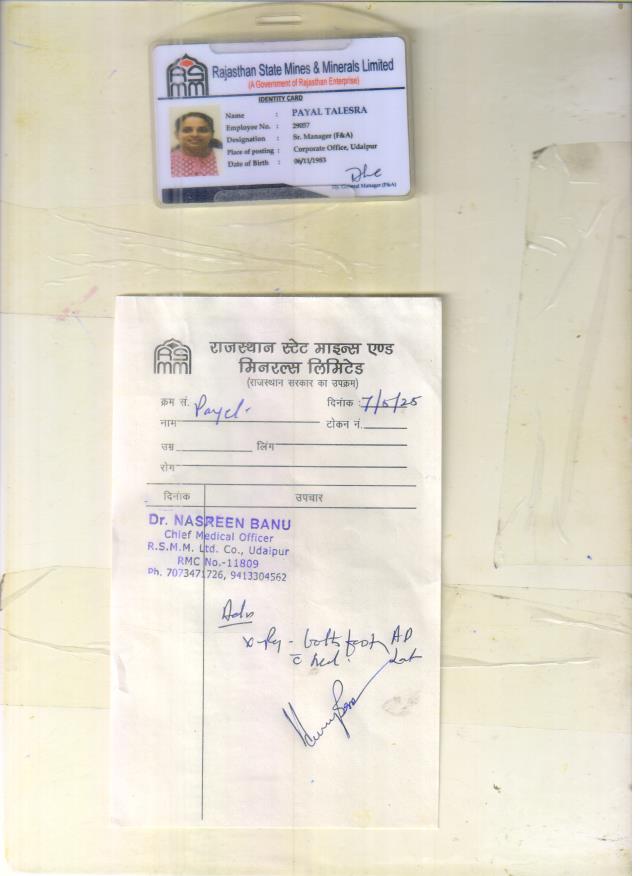 RSMM
Rajasthan State Mines & Minerals Limited
(A Government of Rajasthan Enterprise)
IDENTITY CARD
Name : PAYAL TALESRA
Employee No. : 29057
Designation : Sr. Manager (F&A)
Place of posting : Corporate Office, Udaipur
Date of Birth : 06/11/1983
Dy. General Manager (P&A)
RSMM
राजस्थान स्टेट माइन्स एण्ड
मिनरल्स लिमिटेड
(राजस्थान सरकार का उपक्रम)
क्रम सं. दिनांक : 7/5/25
नाम Payal टोकन नं.
उम्र लिंग
रोग
दिनांक उपचार
Dr. NASREEN BANU
Chief Medical Officer
R.S.M.M. Ltd. Co., Udaipur
RMC No.-11809
Ph. 7073471726, 9413304562
Adv
x-Ray - both foot AP
c̄ heel. Lat